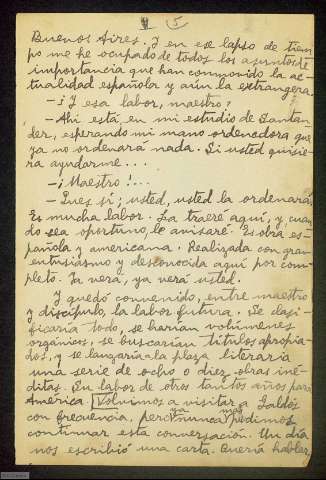 5
Buenos Aires. Y en ese lapso de tiem
po me he ocupado de todos los asuntos de
importancia que han conmovido la ac-
tualidad española y aún la extrangera.
—¿Y esa labor, maestro?
—Ahí está, en mi estudio de Santan-
der, esperando mi mano ordenadora que
ya no ordenará nada. Si usted quisie-
ra ayudarme...
—¡Maestro!...
—Pues sí; usted, usted la ordenará.
Es mucha labor. La traeré aquí, y, cuan
do sea oportuno, le avisaré. Es obra es-
pañola y americana. Realizada con gran
entusiasmo y desconocida aquí por com-
pleto. Ya verá, ya verá usted.
Y quedó convenido, entre maestro
y discípulo, la labor futura. Se clasi-
ficaría todo, se harían volúmenes
orgánicos, se buscarían títulos apropia-
dos, y se lanzaría a la plaza literaria
una serie de ocho o diez obras iné-
ditas. Su labor de otros tantos años para
América. Volvimos a visitar a Galdós
con frecuencia, pero ya nunca más pudimos
continuar esta conversación. Un día
nos escribió una carta. Quería hablar